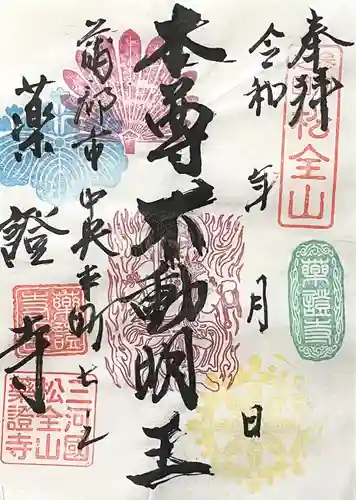 奉拝
令和 年 月 日
本尊不動明王
蒲郡市中央本町七ノ二
薬證寺
松全山
薬證寺
薬證
寺
三河國
松全山
薬證寺